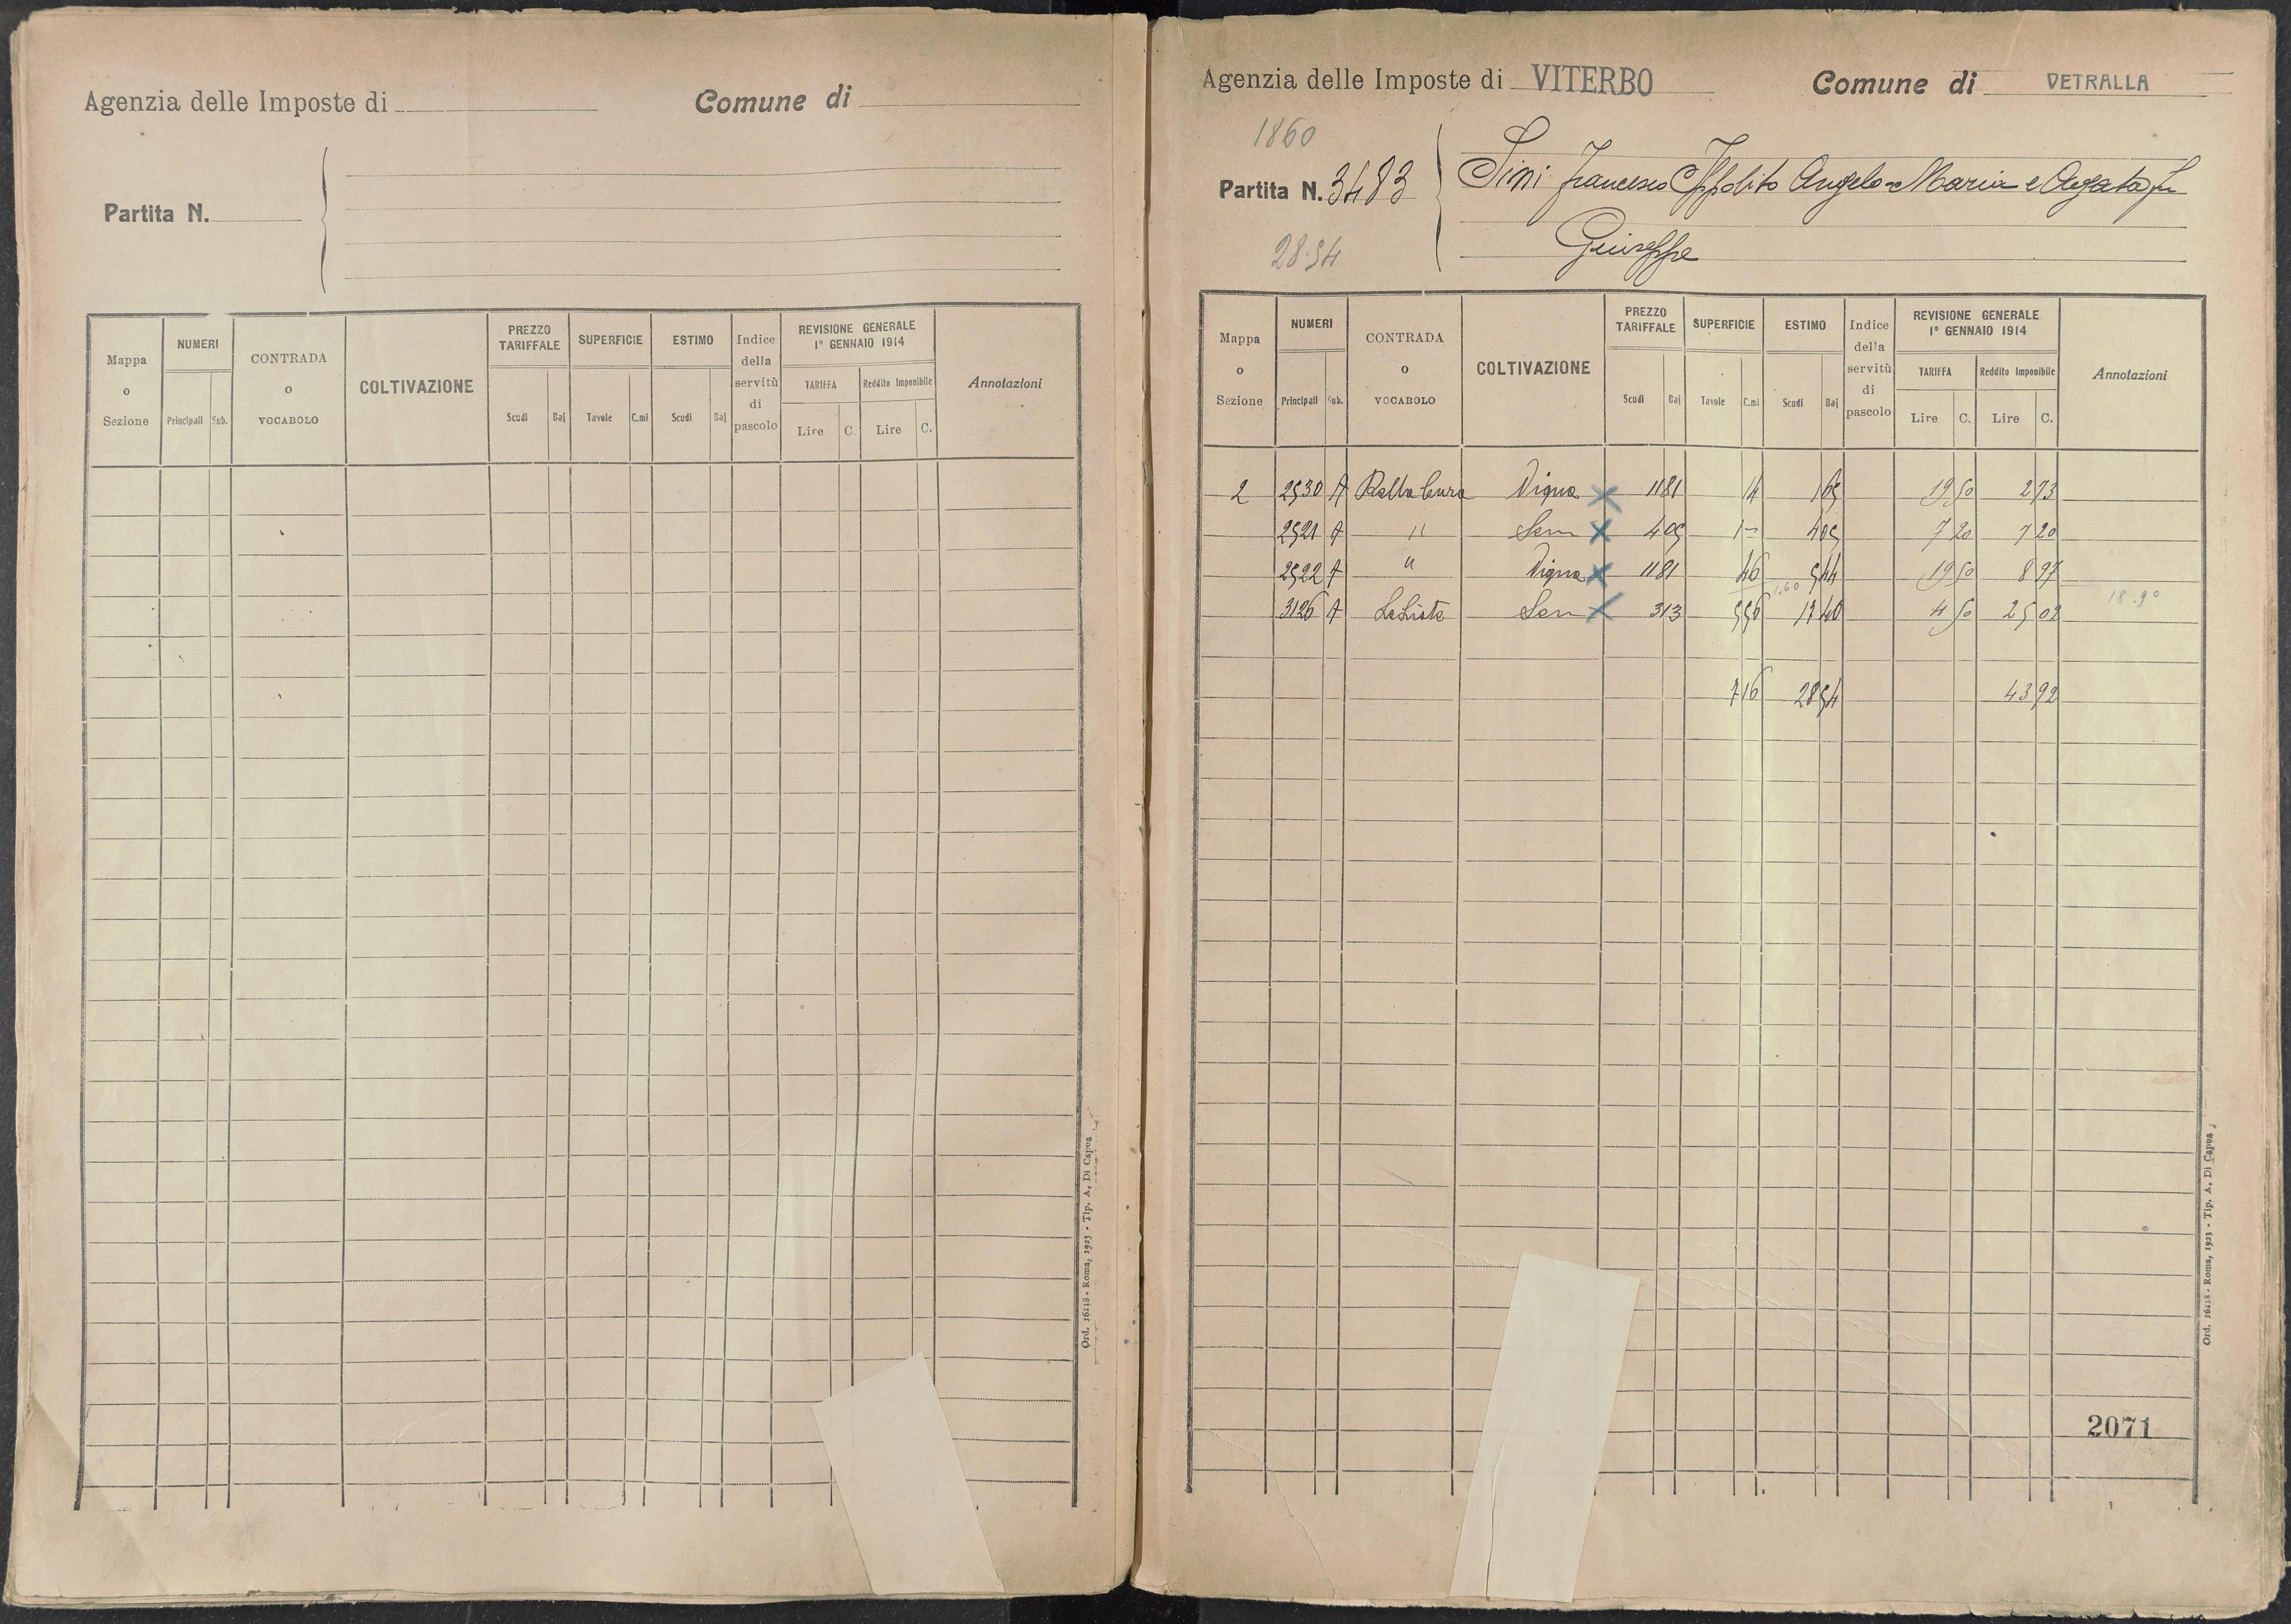 Agenzia delle Imposte di
Comune di
Partita N.
Mappa o Sezione
NUMERI
Principali Sub.
CONTRADA o VOCABOLO
COLTIVAZIONE
PREZZO TARIFFALE
Scudi Baj
SUPERFICIE
Tavole C.mi
ESTIMO
Scudi Baj
Indice della servitù di pascolo
REVISIONE GENERALE 1° GENNAIO 1914
TARIFFA
Lire C.
Reddito Imponibile
Lire C.
Annotazioni
Ord. 16118 - Roma, 1923 - Tip. A. Di Capua
Agenzia delle Imposte di VITERBO
Comune di VETRALLA
1860
Partita N. 3483
28.54
Sini Francesco Ippolito Angelo-Maria e Agata fu
Giuseppe
Mappa o Sezione
NUMERI
Principali Sub.
CONTRADA o VOCABOLO
COLTIVAZIONE
PREZZO TARIFFALE
Scudi Baj
SUPERFICIE
Tavole C.mi
ESTIMO
Scudi Baj
Indice della servitù di pascolo
REVISIONE GENERALE 1° GENNAIO 1914
TARIFFA
Lire C.
Reddito Imponibile
Lire C.
Annotazioni
2 2530 A Vigna X 11 81 14 1 65 19 50 2 73
2521 A " Sem X 4 05 1 - 4 05 7 20 7 20
2522 A " Vigna X 11 81 46 5 44 19 50 8 97
3126 A Sem X 3 13 5 56 1.60 17 40 4 50 25 02 18.90
7 16 28 54 43 92
2071
Ord. 16118 - Roma, 1923 - Tip. A. Di Capua